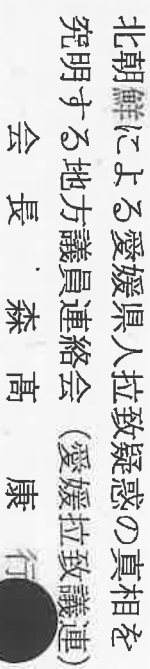 北朝鮮による愛媛県人拉致疑惑の真相を
究明する地方議員連絡会（愛媛拉致議連）
会長・森高康行